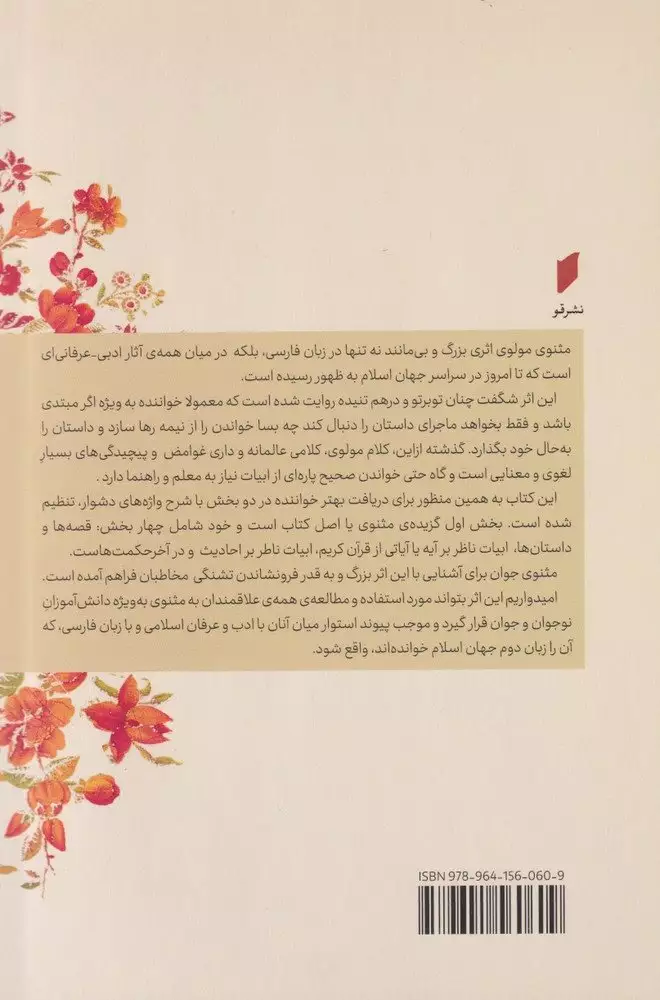 نشر قو
مثنوی مولوی اثری بزرگ و بی‌مانند نه تنها در زبان فارسی، بلکه در میان همه‌ی آثار ادبی-عرفانی‌ای
است که تا امروز در سراسر جهان اسلام به ظهور رسیده است.
این اثر شگفت چنان توبرتو و درهم تنیده روایت شده است که معمولا خواننده به ویژه اگر مبتدی
باشد و فقط بخواهد ماجرای داستان را دنبال کند چه بسا خواندن را از نیمه رها سازد و داستان را
به‌حال خود بگذارد. گذشته ازاین، کلام مولوی، کلامی عالمانه و داری غوامض و پیچیدگی‌های بسیارِ
لغوی و معنایی است و گاه حتی خواندن صحیح پاره‌ای از ابیات نیاز به معلم و راهنما دارد .
این کتاب به همین منظور برای دریافت بهتر خواننده در دو بخش با شرح واژه‌های دشوار، تنظیم
شده است. بخش اول گزیده‌ی مثنوی یا اصل کتاب است و خود شامل چهار بخش: قصه‌ها و
داستان‌ها، ابیات ناظر بر آیه یا آیاتی از قرآن کریم، ابیات ناطر بر احادیث و در آخرحکمت‌هاست.
مثنوی جوان برای آشنایی با این اثر بزرگ و به قدر فرونشاندن تشنگی مخاطبان فراهم آمده است.
امیدواریم این اثر بتواند مورد استفاده و مطالعه‌ی همه‌ی علاقمندان به مثنوی به‌ویژه دانش‌آموزانِ
نوجوان و جوان قرار گیرد و موجب پیوند استوار میان آنان با ادب و عرفان اسلامی و با زبان فارسی، که
آن را زبان دوم جهان اسلام خوانده‌اند، واقع شود.
ISBN 978-964-156-060-9